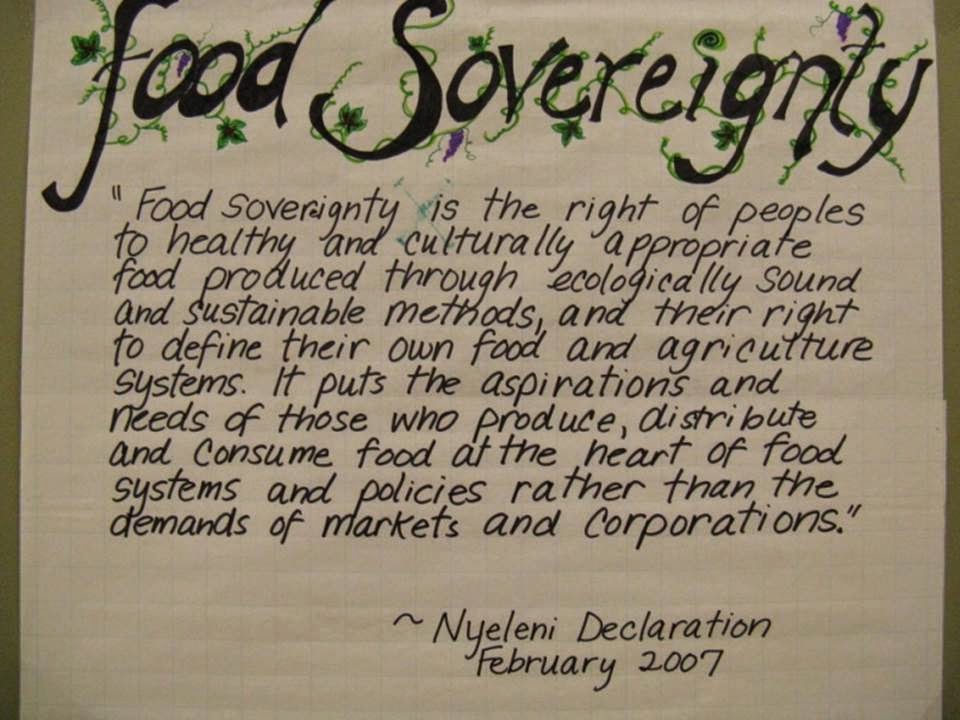 Food Sovereignty
"Food Soverignty is the right of peoples
to healthy and culturally appropriate
food produced through ecologically sound
and sustainable methods, and their right
to define their own food and agriculture
systems. It puts the aspirations and
needs of those who produce, distribute
and consume food at the heart of food
systems and policies rather than the
demands of markets and corporations."
~ Nyeleni Declaration
February 2007